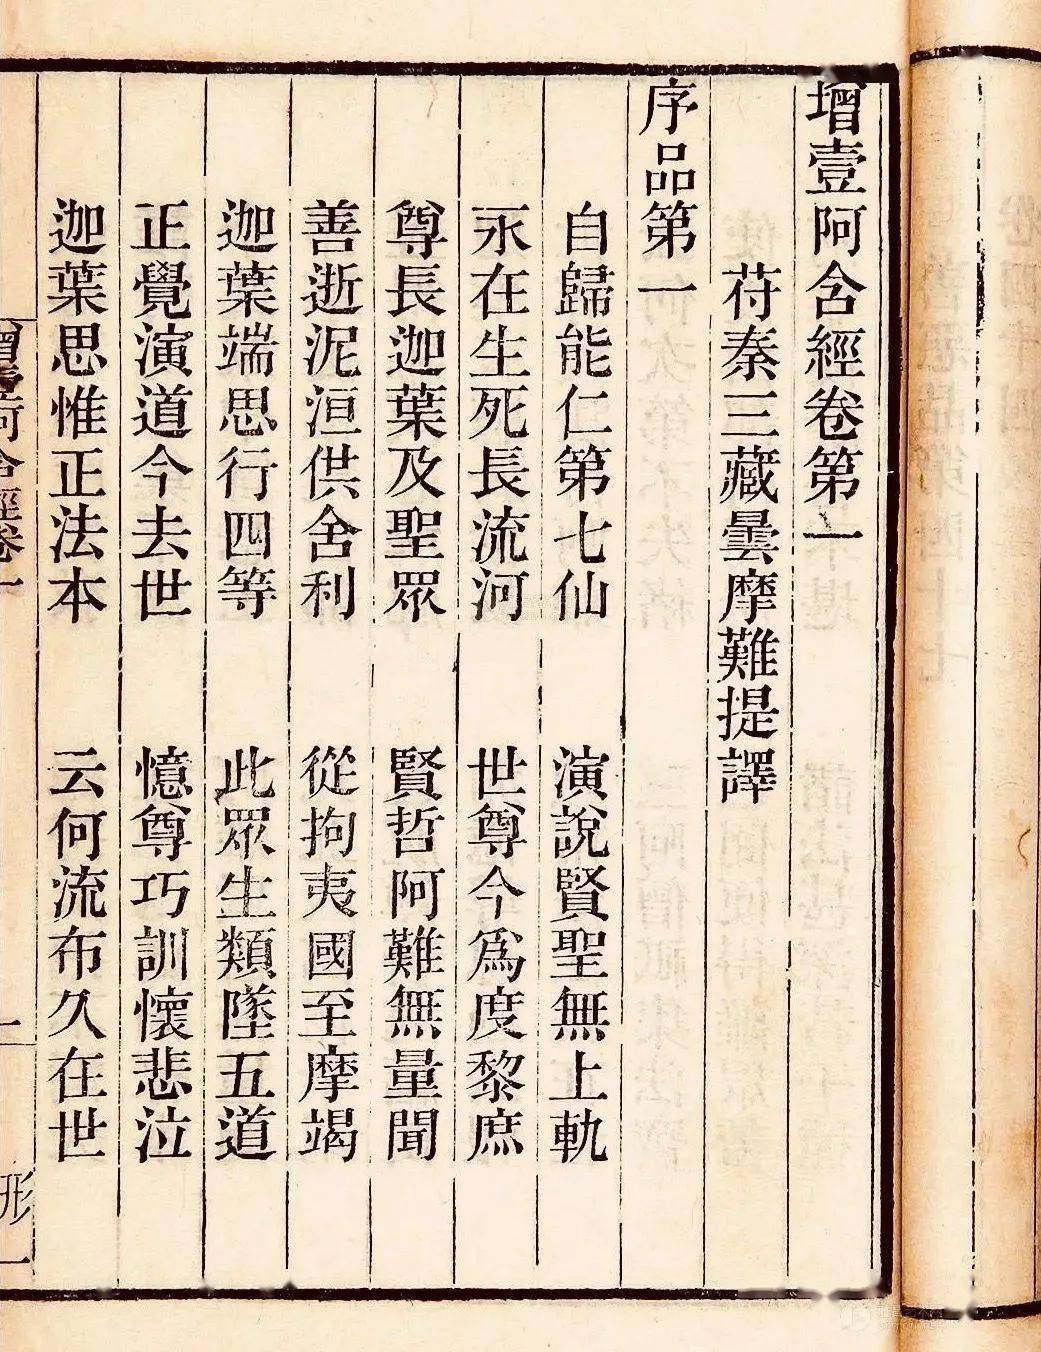 增壹阿含經卷第一
苻秦三藏曇摩難提譯
序品第一
自歸能仁第七仙　演說賢聖無上軌
永在生死長流河　世尊今爲度黎庶
尊長迦葉及聖眾　賢哲阿難無量聞
善逝泥洹供舍利　從拘夷國至摩竭
迦葉端思行四等　此眾生類墜五道
正覺演道今去世　憶尊巧訓懷悲泣
迦葉思惟正法本　云何流布久在世
增壹阿含經卷一　一　形一